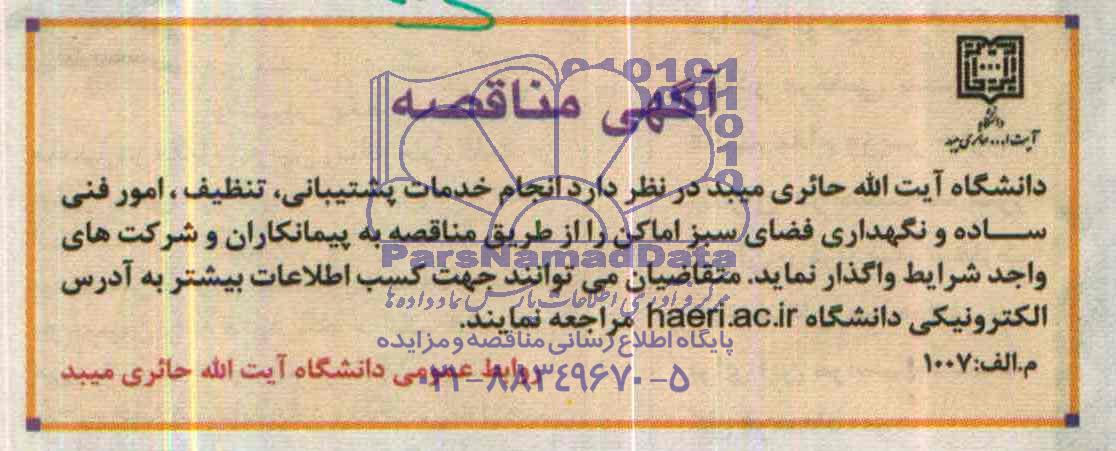 آگهی مناقصه
دانشگاه
آیت ا... حائری میبد
دانشگاه آیت الله حائری میبد در نظر دارد انجام خدمات پشتیبانی، تنظیف ، امور فنی
ســـاده و نگهداری فضای سبز اماکن را از طریق مناقصه به پیمانکاران و شرکت های
واجد شرایط واگذار نماید. متقاضیان می توانند جهت کسب اطلاعات بیشتر به آدرس
الکترونیکی دانشگاه haeri.ac.ir مراجعه نمایند.
م.الف:۱۰۰۷
روابط عمومی دانشگاه آیت الله حائری میبد
ParsNamadData
مرکز فرآوری اطلاعات پارس نماد داده ها
پایگاه اطلاع رسانی مناقصه و مزایده
۰۲۱-۸۸۳۴۹۶۷۰-۵